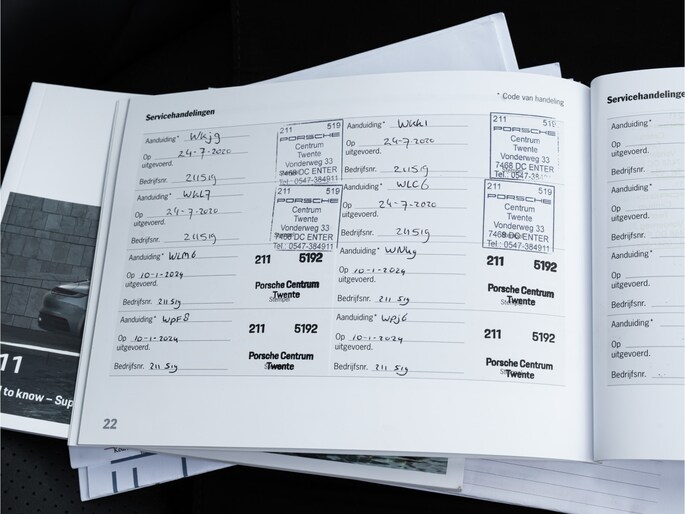 Servicehandelingen
* Code van handeling
Aanduiding* WKJ9
Op 24-7-2020
uitgevoerd.
Bedrijfsnr. 211519
211 519
PORSCHE
Centrum
Twente
Vonderweg 33
7468 DC ENTER
Tel.: 0547-384911
Aanduiding* WKK1
Op 24-7-2020
uitgevoerd.
Bedrijfsnr. 211519
211 519
PORSCHE
Centrum
Twente
Vonderweg 33
7468 DC ENTER
Tel.: 0547-38
Aanduiding* WKL7
Op 24-7-2020
uitgevoerd.
Bedrijfsnr. 211519
211 519
PORSCHE
Centrum
Twente
Vonderweg 33
7468 DC ENTER
Tel.: 0547-384911
Aanduiding* WLC6
Op 24-7-2020
uitgevoerd.
Bedrijfsnr. 211519
211 519
PORSCHE
Centrum
Twente
Vonderweg 33
7468 DC ENTER
Tel.: 0547-384911
Aanduiding* WLM6
Op 10-1-2024
uitgevoerd.
Bedrijfsnr. 211 519
211 5192
Porsche Centrum
Twente
Aanduiding* WNK9
Op 10-1-2024
uitgevoerd.
Bedrijfsnr. 211 519
211 5192
Porsche Centrum
Twente
Stempel
Aanduiding* WPF8
Op 10-1-2024
uitgevoerd.
Bedrijfsnr. 211 519
211 5192
Porsche Centrum
Twente
Aanduiding* WPJ6
Op 10-1-2024
uitgevoerd.
Bedrijfsnr. 211 519
211 5192
Porsche Centrum
Twente
22
Servicehandelinge
Aanduiding*
Op
uitgevoerd.
Bedrijfsnr.
Aanduiding*
Op
uitgevoerd.
Bedrijfsnr.
Aanduiding*
Op
uitgevoerd.
Bedrijfsnr.
Aanduiding*
Op
uitgevoerd.
Bedrijfsnr.
11
to know – Sup